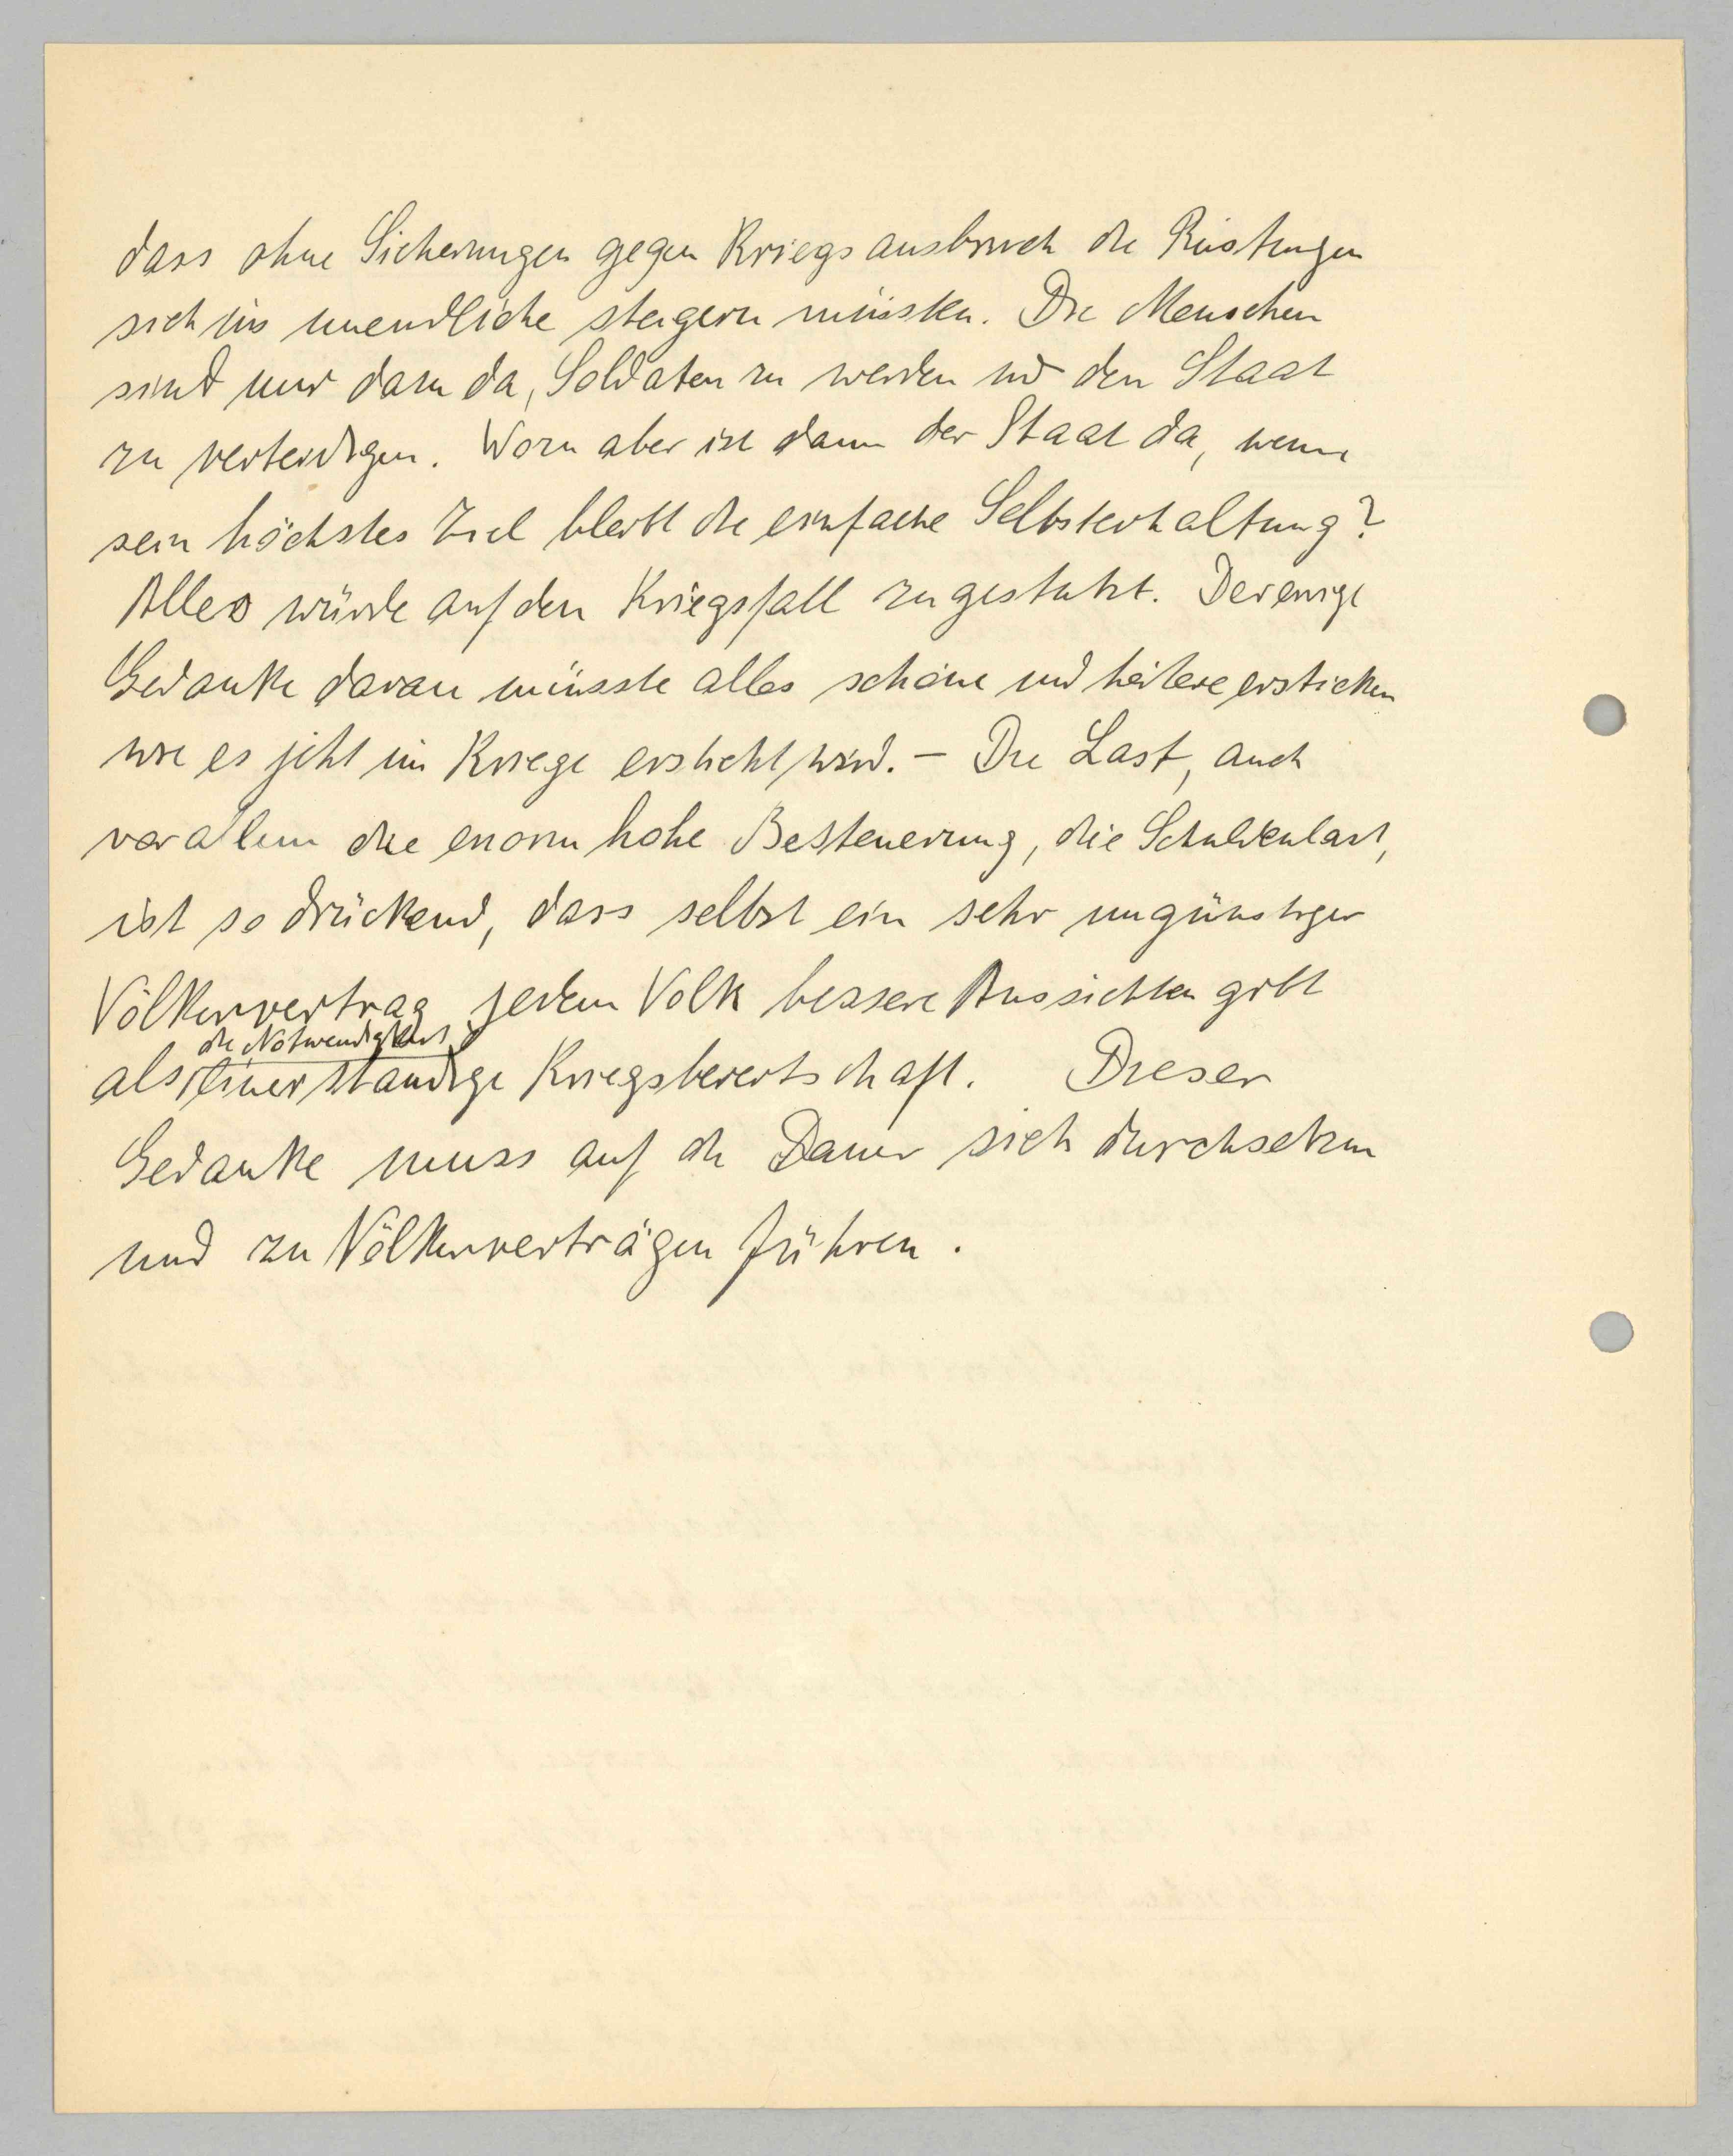 dass ohne Sicherungen gegen Kriegsausbruch die Rüstungen
sich ins unendliche steigern müssten. Die Menschen
sind nur dazu da, Soldaten zu werden und den Staat
zu verteidigen. Wozu aber ist dann der Staat da, wenn
sein höchstes Ziel bleibt die einfache Selbsterhaltung?
Alles würde auf den Kriegsfall zugestutzt. Der ewige
Gedanke daran müsste alles schöne und heitere ersticken
wie es jetzt im Kriege erstickt wird. – Die Last, auch
vor allem die enorm hohe Besteuerung, die Schuldenlast,
ist so drückend, dass selbst ein sehr ungünstiger
Völkervertrag jedem Volk bessere Aussichten gibt
die Notwendigkeit
als einer ständige Kriegsbereitschaft. Dieser
Gedanke muss auf die Dauer sich durchsetzen
und zu Völkerverträgen führen.